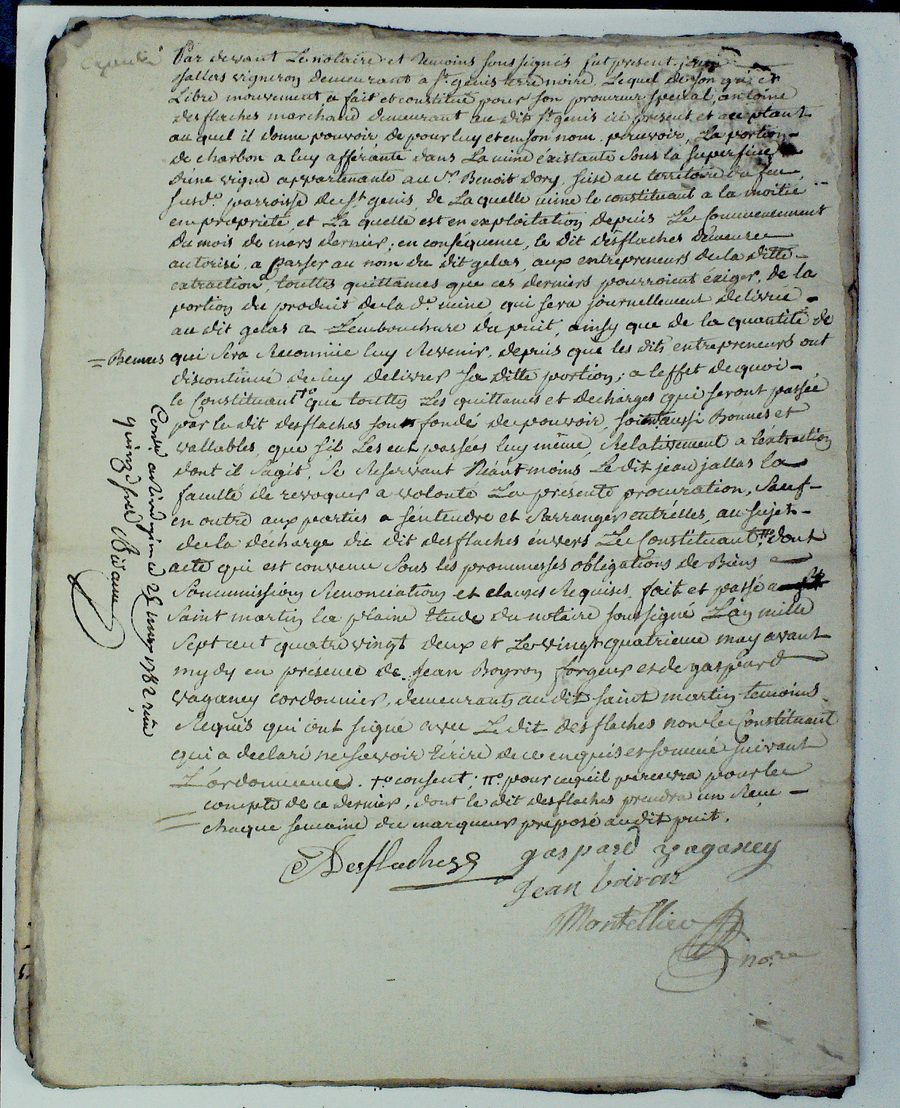 Par devant Le notaire et temoins soussignés fut present jean
jallas vigneron demeurant a st. genis terre noire, Lequel de son gré et
Libre mouvement a fait et constitué pour son procureur special, antoine
desflaches marchand demeurant au dit st. genis ici present et acceptant
au quel il donne pouvoir, de pour luy et en son nom, percevoir, La portion
de charbon a luy afférante dans La mine éxistante sous la superficie
d'une vigne appartenante au sr. Benoit dory, sise au territoire du feu,
susde. parroisse de st. genis, de La quelle mine le constituant a la moitié
en propriété, et La quelle est en exploitation depuis Le Commencement
du mois de mars dernier; en conséquence, le dit desflaches demeure
autorisé, a passer au nom du dit gelas, aux entrepreneurs de la ditte
extraction, touttes quittances que ces derniers pourroient éxiger, de la
portion du produit de la de. mine qui sera journellement delivrée
au dit gelas a Lembouchure du puit, ainsy que de la quantité de
= Bennes qui sera Reconnüe luy Revenir, depuis que les dits entrepreneurs ont
discontinué de luy delivrer sa ditte portion; a l'effet de quoi
le Constituant +o que touttes Les quittances et decharges qui seront passée
par le dit desflaches son fondé de pouvoir, soint aussi Bonnes et
vallables, que sil Les eut passées luy même, Relativement a lextraction
dont il s'agit, se Reservant Néant moins Le dit jean jallas la
faculté de revoquer a volonté La présente procuration, sauf
en outre aux parties a sentendre et sarranger entrelles, au sujet
de la décharge du dit desflaches envers Le Constituant, dont
acte qui est convenu sous les prommesses obligations de Biens
soummissions Renonciations et clauses Requises, fait et passé a
Saint martin La plaine Etude du notaire soussigné L'an mille
Sept cent quatre vingt deux et Le vingt quatrieme may avant
mydy en présence de Jean Boyron forgeur et de gaspard
vaganey cordonnier, demeurants au dit saint martin temoins
Requis qui ont signé avec Le dit desflaches non le Constituant
qui a declaré ne savoir Ecrire de ce enquis et sommé suivant
L'ordonnance. +o consent, no pour ce qu'il percevra pour le
compte de ce dernier, dont le dit desflaches prendra un Recu
chaque semaine du marqueur preposé au dit puit.
Desflaches gaspard vaganey
Jean boiron
Montellier
nore
1782
quinze sols